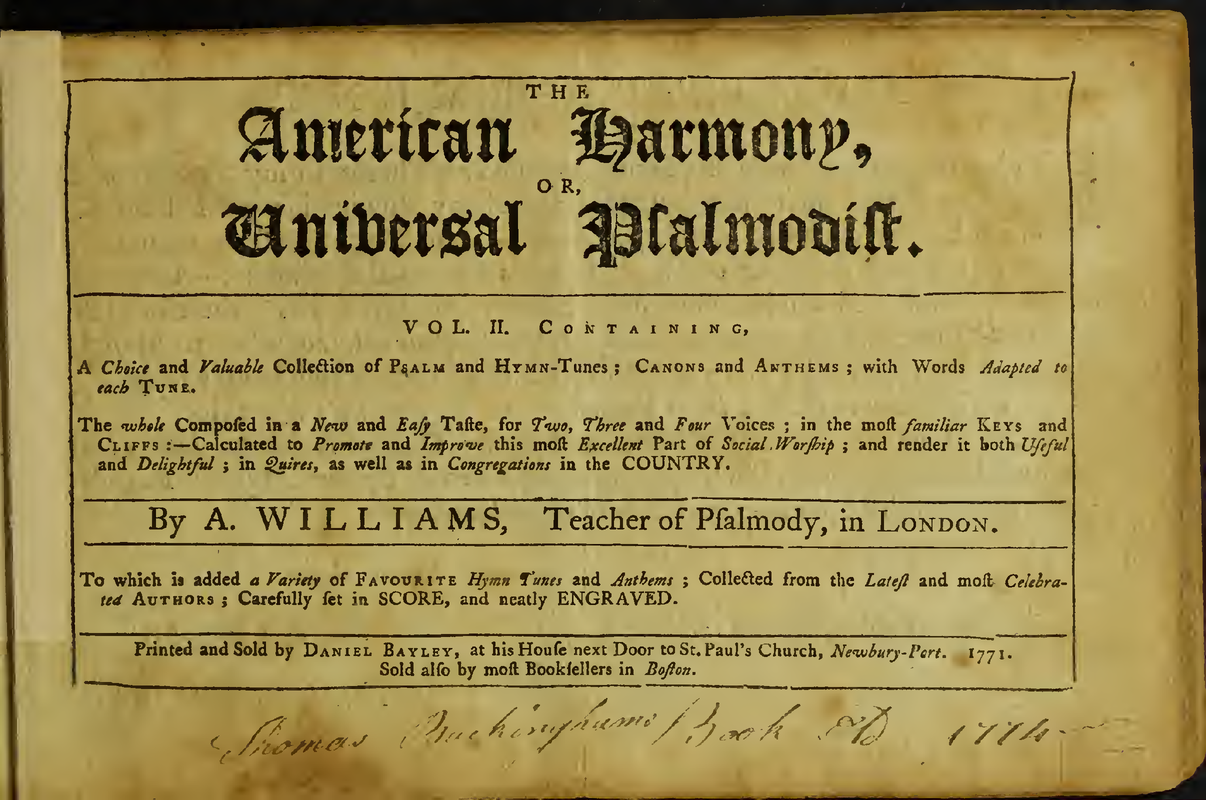 THE
American Harmony,
OR,
Universal Psalmodist.
VOL. II. CONTAINING,
A Choice and Valuable Collection of PSALM and HYMN-Tunes; CANONS and ANTHEMS; with Words Adapted to
each TUNE.
The whole Compoſed in a New and Eaſy Taſte, for Two, Three and Four Voices; in the moſt familiar KEYS and
CLIFFS:—Calculated to Promote and Improve this moſt Excellent Part of Social Worſhip; and render it both Uſeful
and Delightful; in Quires, as well as in Congregations in the COUNTRY.
By A. WILLIAMS, Teacher of Pſalmody, in LONDON.
To which is added a Variety of FAVOURITE Hymn Tunes and Anthems; Collected from the Lateſt and moſt Celebra-
ted AUTHORS; Carefully ſet in SCORE, and neatly ENGRAVED.
Printed and Sold by DANIEL BAYLEY, at his Houſe next Door to St. Paul's Church, Newbury-Port. 1771.
Sold alſo by moſt Bookſellers in Boſton.
Thomas Buckinghams Book 1774